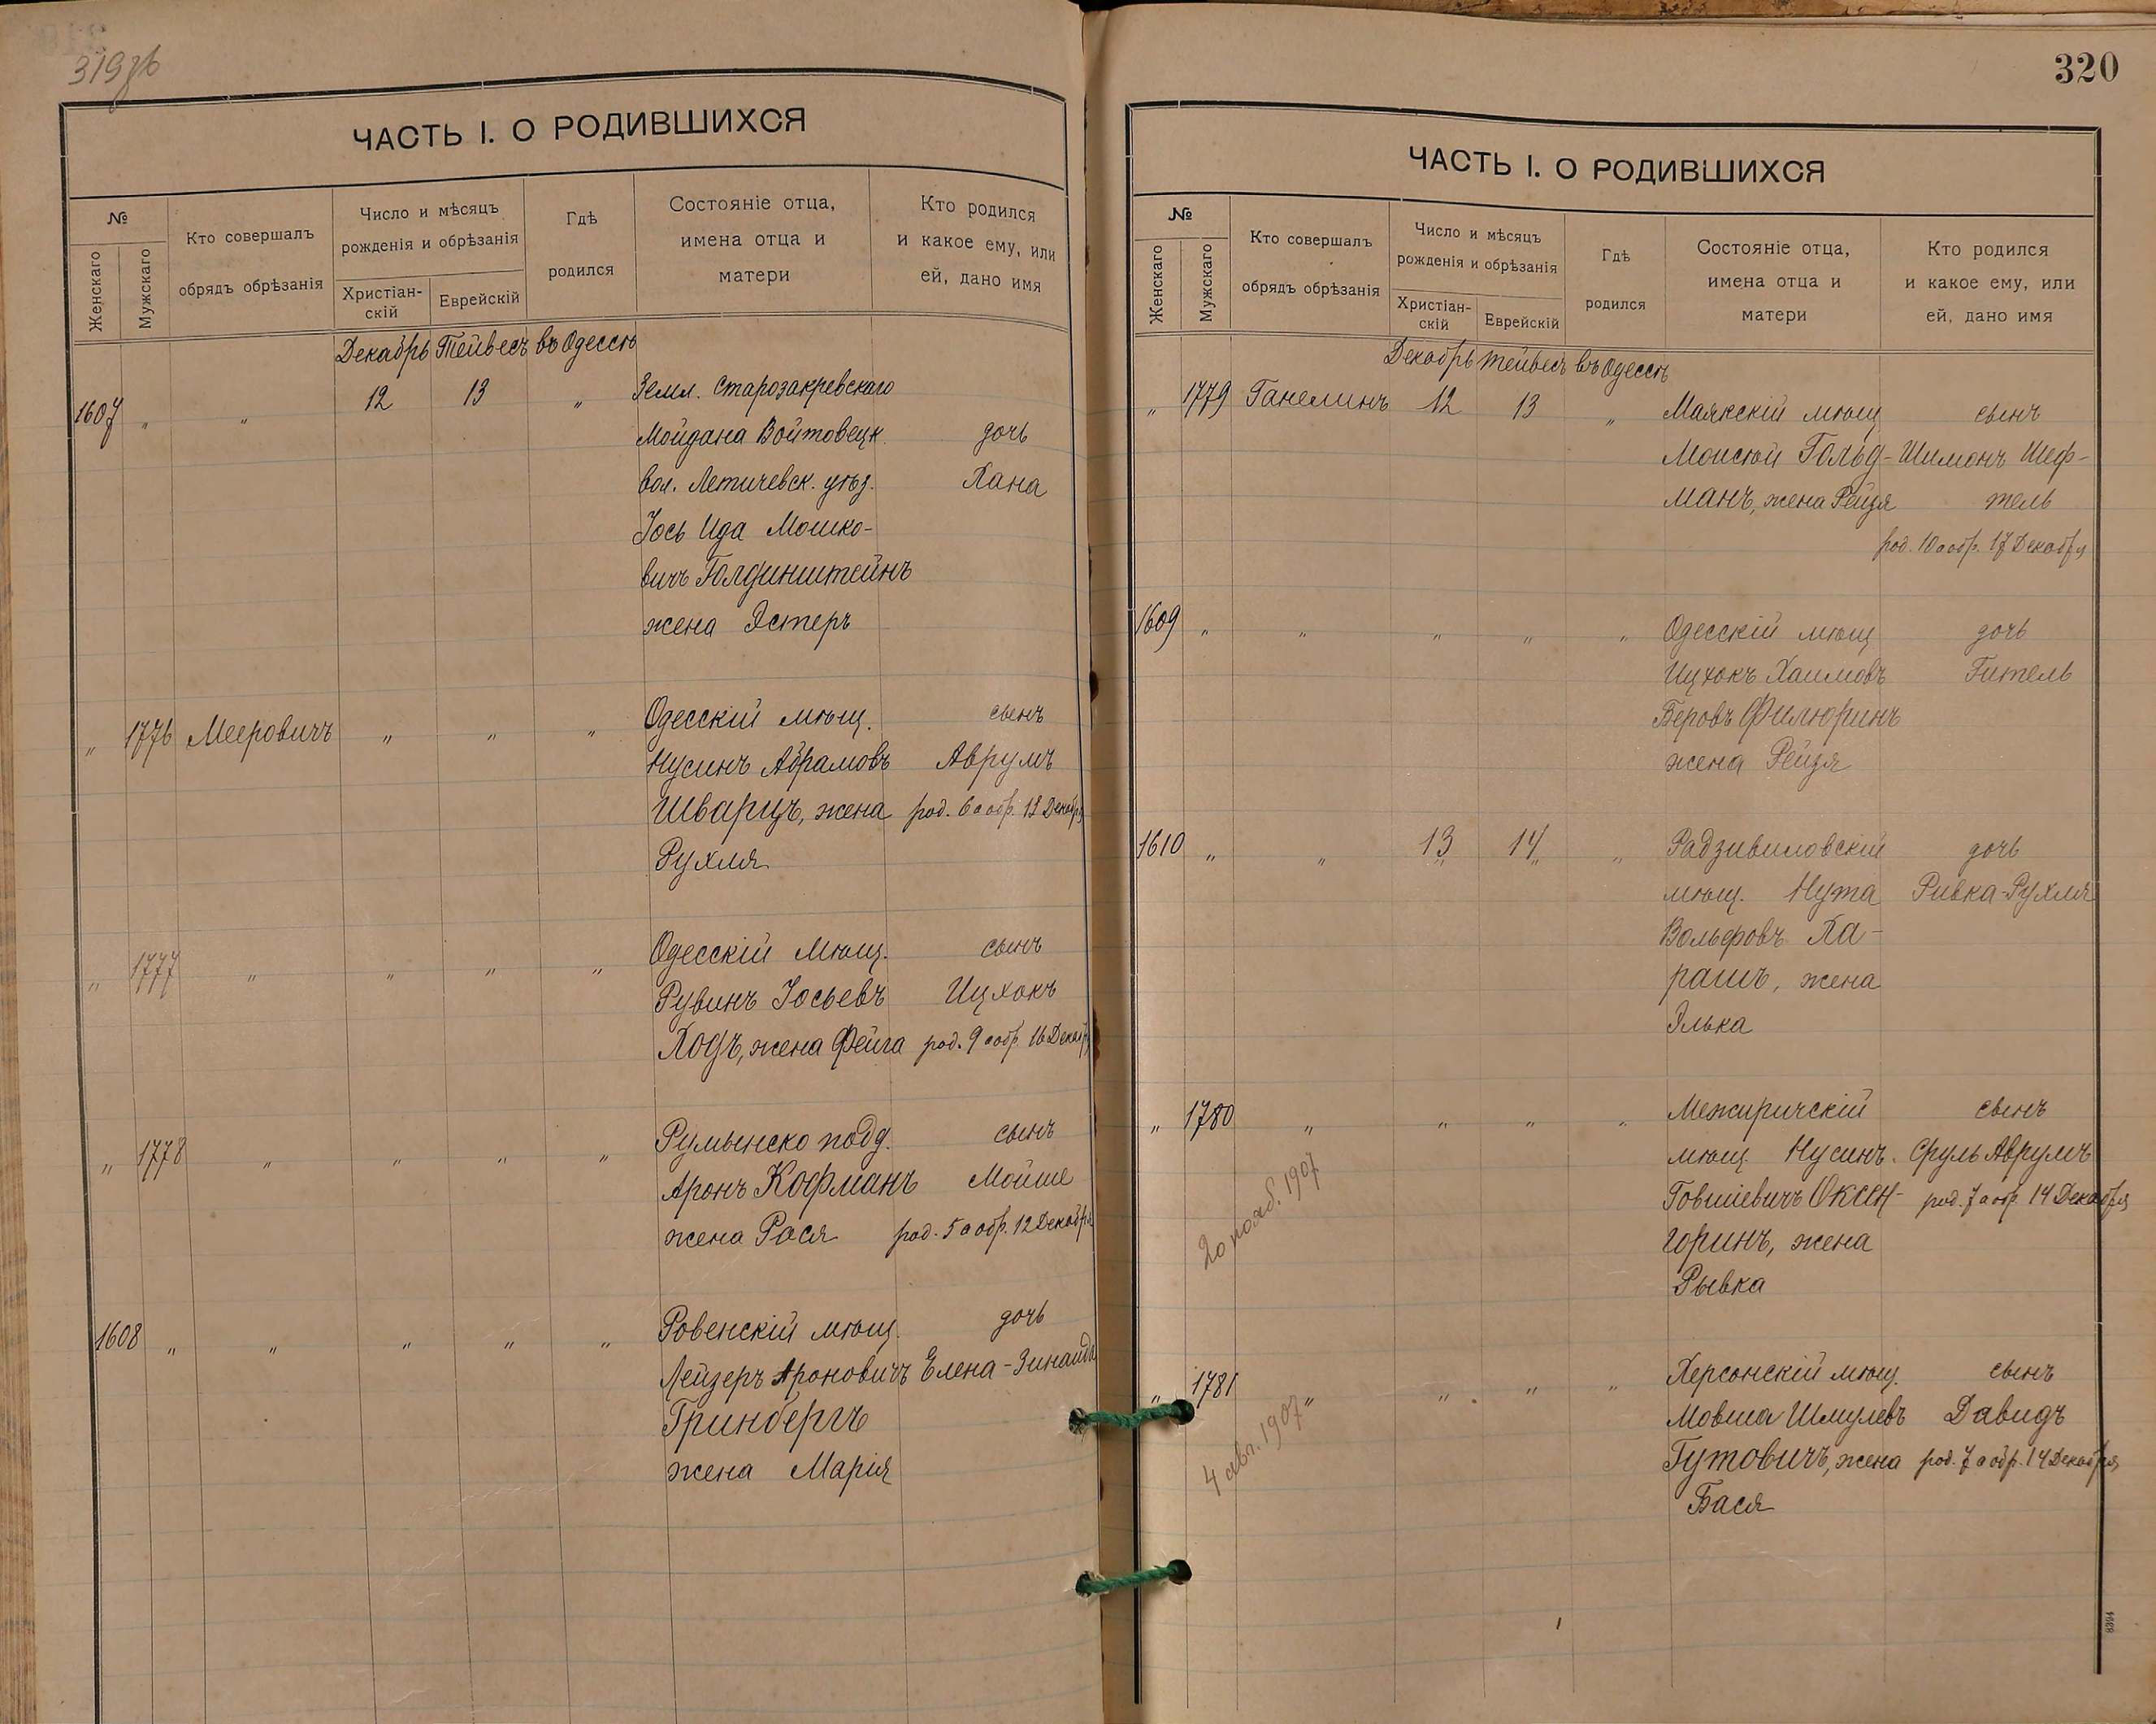 319об
ЧАСТЬ I. О РОДИВШИХСЯ
№
Женскаго
Мужскаго
Кто совершалъ
обрядъ обрѣзанія
Число и мѣсяцъ
рожденія и обрѣзанія
Христіан-
скій
Еврейскій
Гдѣ
родился
Состояніе отца,
имена отца и
матери
Кто родился
и какое ему, или
ей, дано имя
Декабрь Тейвесъ въ Одессѣ
1607 „ „ 12 13 „ Земл. Старозакревскаго
Мойдана Войтовецк. дочь
вол. Летичевск. уѣз. Хана
Іось Ида Мошко-
вичъ Голдинштейнъ
жена Эстеръ
„ 1776 Мееровичъ „ „ „ Одесскій мѣщ. сынъ
Нусинъ Абрамовъ Аврумъ
Шварцъ, жена род. 6 а обр. 13 Декабря
Рухля
„ 1777 „ „ „ „ Одесскій мѣщ. сынъ
Рувинъ Іосьевъ Ицхокъ
Ходъ, жена Фейга род. 9 а обр. 16 Декабр
„ 1778 „ „ „ „ Румынско подд. сынъ
Аронъ Кофманъ Мойше
жена Рася род. 5 а обр. 12 Декабря
1608 „ „ „ „ „ Ровенскій мѣщ. дочь
Лейзеръ Ароновичъ Елена-Зинаида
Гринбергъ
жена Марія
320
ЧАСТЬ I. О РОДИВШИХСЯ
№
Женскаго
Мужскаго
Кто совершалъ
обрядъ обрѣзанія
Число и мѣсяцъ
рожденія и обрѣзанія
Христіан-
скій
Еврейскій
Гдѣ
родился
Состояніе отца,
имена отца и
матери
Кто родился
и какое ему, или
ей, дано имя
Декабрь Тейвесъ въ Одессѣ
„ 1779 Ганелинъ 12 13 „ Маякскій мѣщ сынъ
Моисѣй Гольд- Шимонъ Шеф-
манъ, жена Рейзя тель
род. 10 а обр. 17 Декабря
1609 „ „ „ „ „ Одесскій мѣщ дочь
Ицхокъ Хаимовъ Гитель
Беровъ Филюринъ
жена Рейзя
1610 „ „ 13 14 „ Радзивиловскій дочь
мѣщ. Нута Ривка-Рухля
Вольфовъ Ха-
рашъ, жена
Элька
„ 1780 „ „ „ „ Межиричскій сынъ
мѣщ Нусинъ Сруль Аврумъ
Говшіевичъ Оксен- род. 7 а обр. 14 Декабря
горинъ, жена
Рывка
20 нояб. 1907
„ 1781 „ „ „ „ Херсонскій мѣщ. сынъ
Мовша Шмулевъ Давидъ
Гутовичъ, жена род. 7 а обр. 14 Декабря
Бася
4 авг. 1907
8394